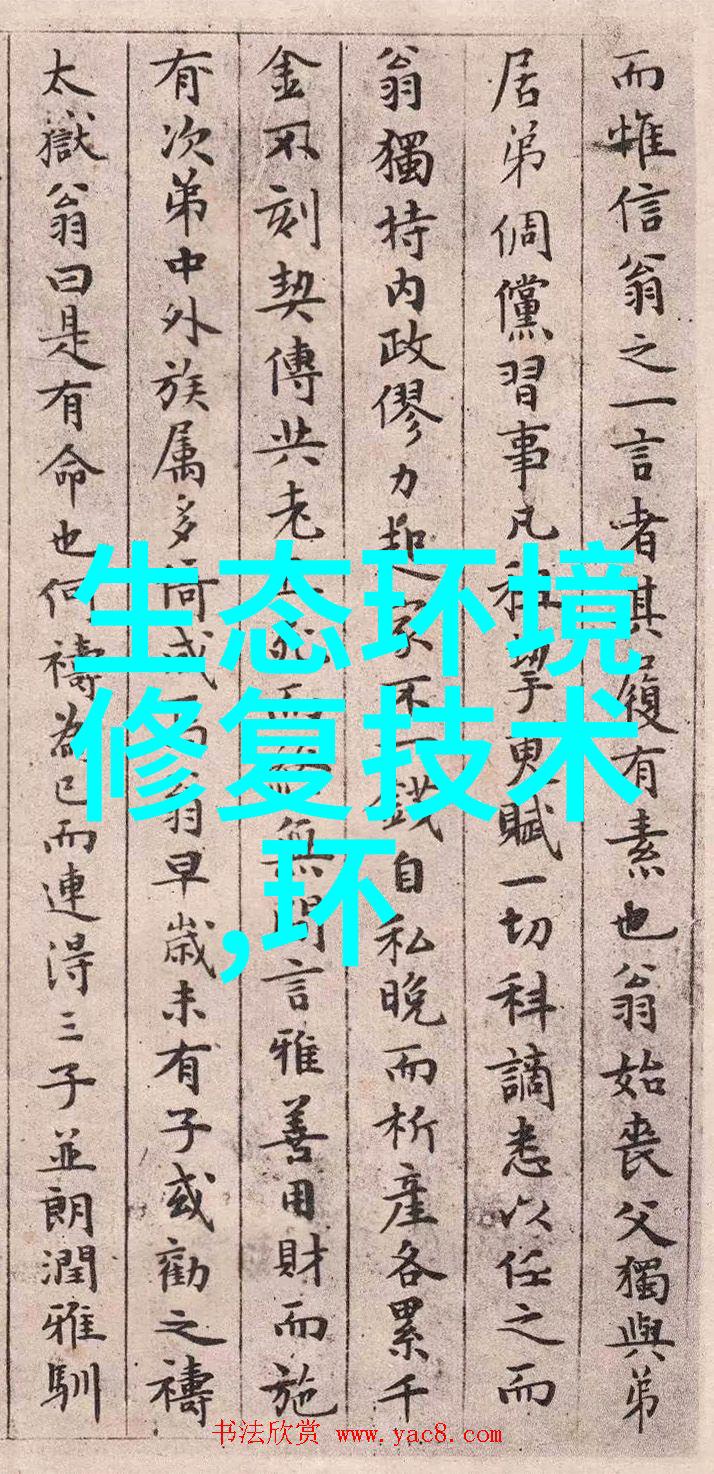 而惟信翁之一言者其履有素也翁始喪父獨與弟
居弟倜儻習事凡租擎更賦一切科謫悉以任之而
翁獨持内政僇力起家不一錢自私晚而析產各累千
金不刻契傳共老無間言雅善用財而施
有次弟中外族属多倚成翁早歲未有子或勸之禱
太嶽翁曰是有命也何禱為已而連得三子並朗潤雅馴
生态环境
修复技术
,环
书法欣赏 www.yac8.com